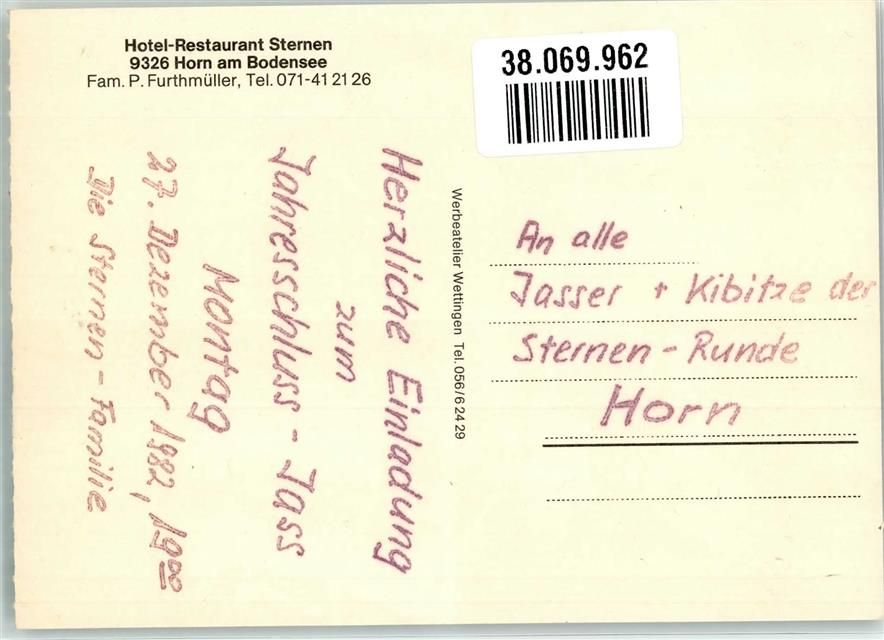 Hotel-Restaurant Sternen
9326 Horn am Bodensee
Fam. P. Furthmüller, Tel. 071-41 21 26
38.069.962
Herzliche Einladung
zum
Jahresschluss - Jass
Montag
27. Dezember 1982, 19⁰⁰
Die Sternen - Familie
Werbeatelier Wettingen Tel. 056/6 24 29
An alle
Jasser + Kibitze der
Sternen - Runde
Horn